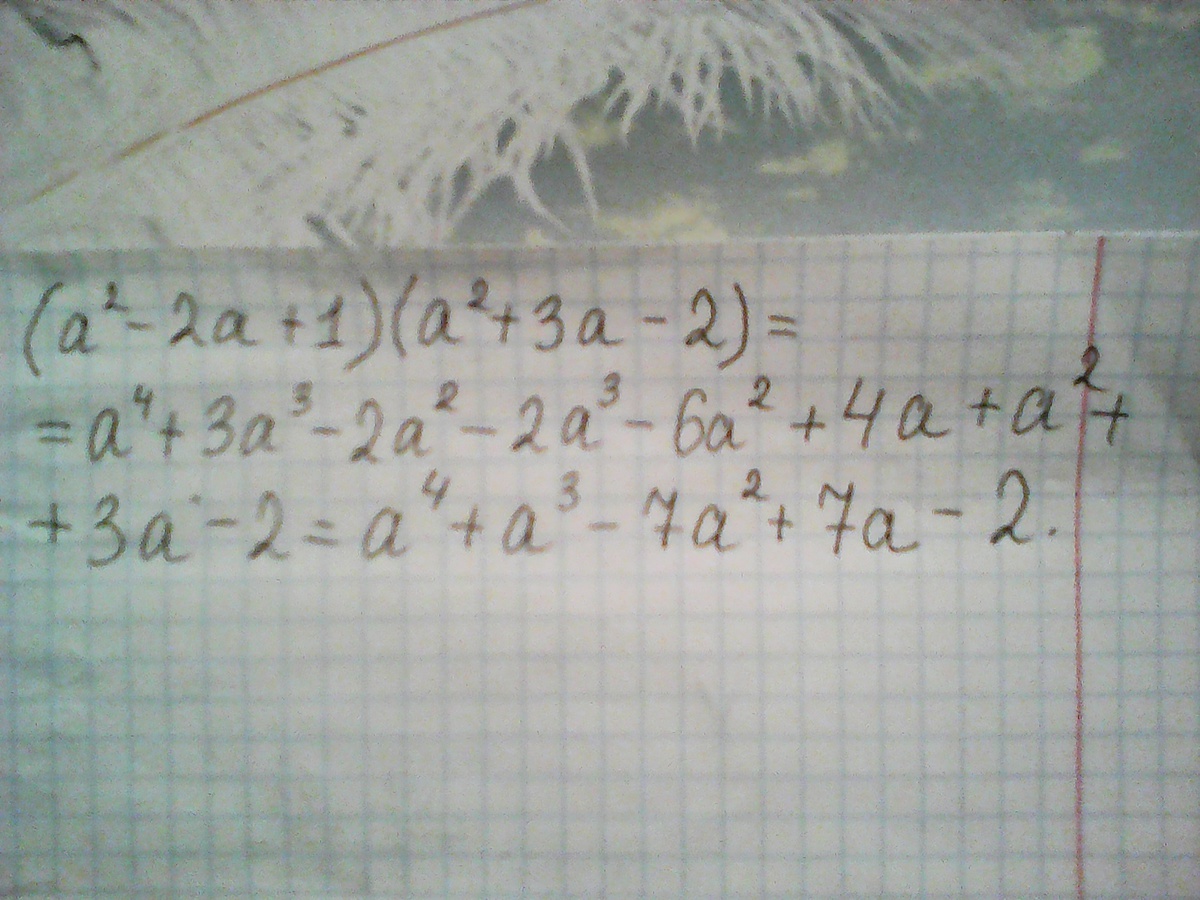 (a²-2a+1)(a²+3a-2)=
=a⁴+3a³-2a²-2a³-6a²+4a+a²+
+3a-2=a⁴+a³-7a²+7a-2.